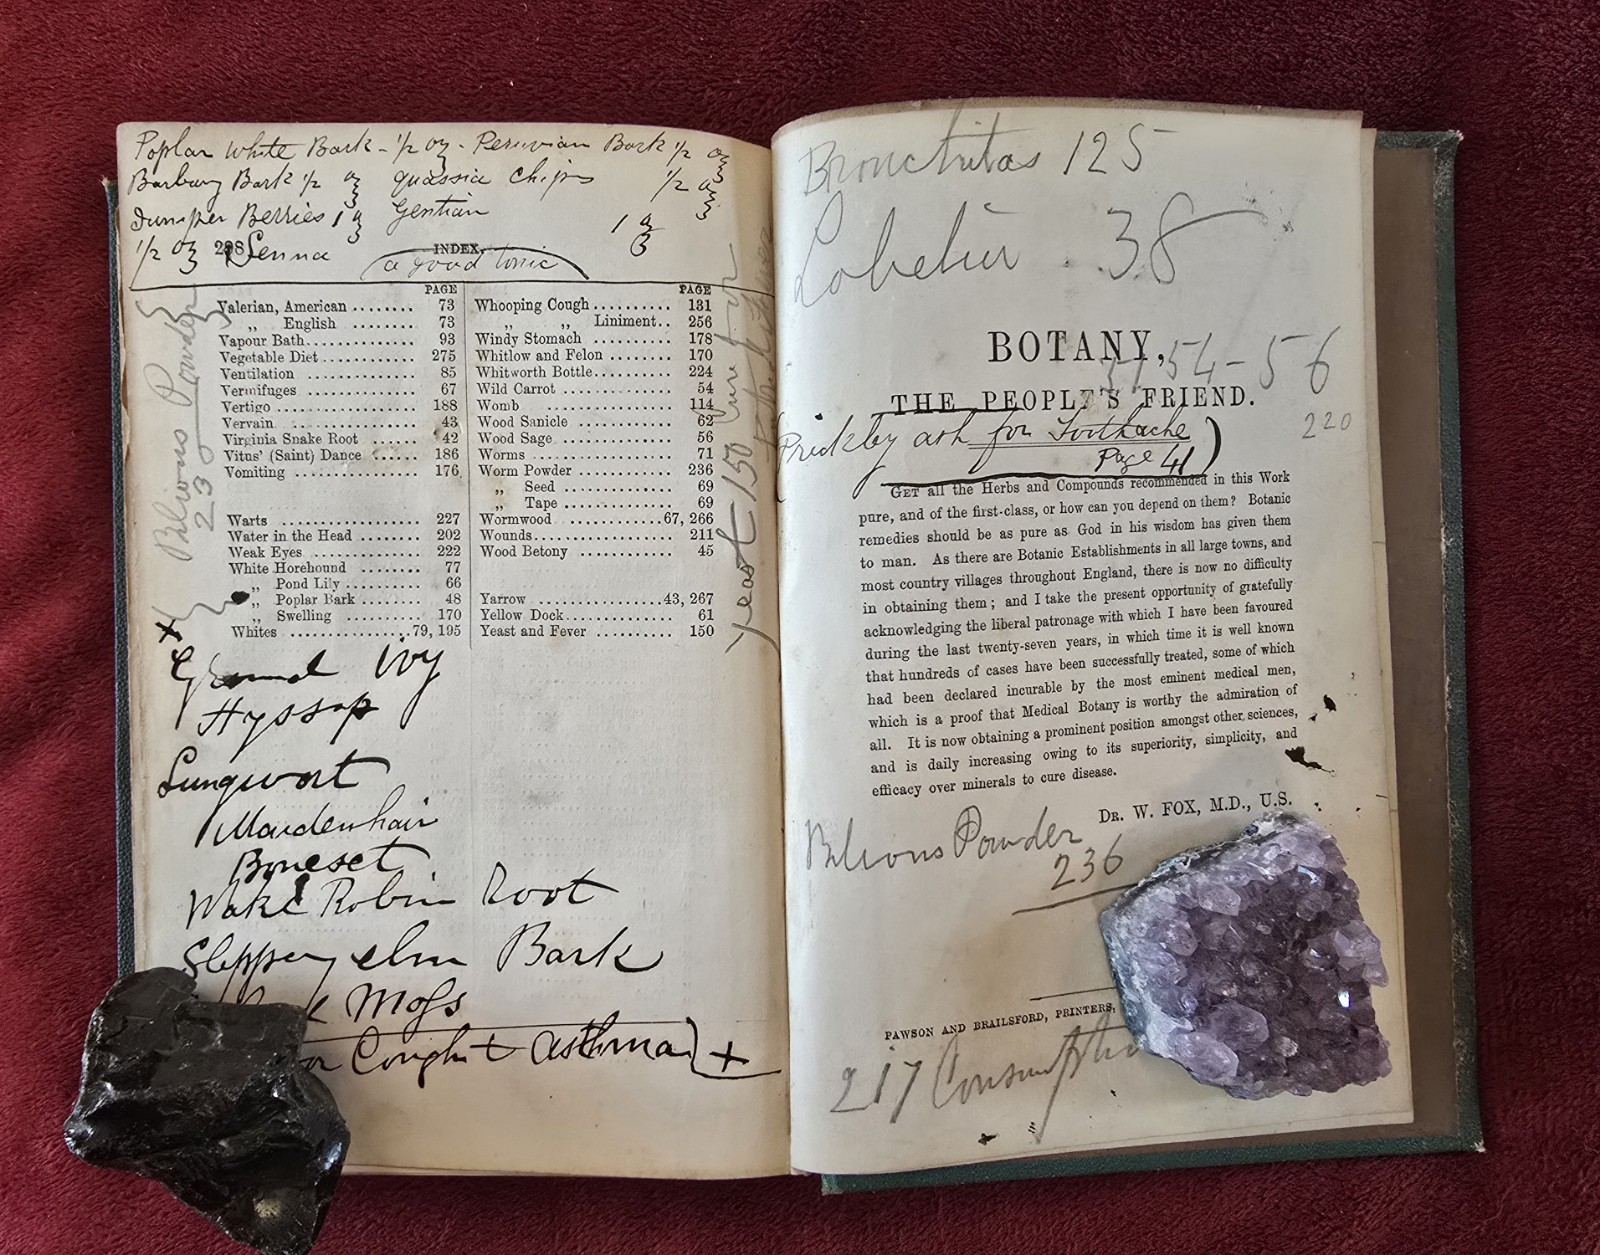 Poplar White Bark - 1/2 oz - Peruvian Bark 1/2 oz
Barbury Bark 1/2 oz quassia chips 1/2 oz
Juniper Berries 1 oz Gentian 1 oz
1/2 oz Senna
298 INDEX.
a good tonic
PAGE
Valerian, American ........ 73
„ English ........ 73
Vapour Bath ........ 93
Vegetable Diet ........ 275
Ventilation ........ 85
Vermifuges ........ 67
Vertigo ........ 188
Vervain ........ 43
Virginia Snake Root ...... 42
Vitus' (Saint) Dance ...... 186
Vomiting ........ 176
Warts ........ 227
Water in the Head ........ 202
Weak Eyes ........ 222
White Horehound ........ 77
„ Pond Lily ........ 66
„ Poplar Bark ........ 48
„ Swelling ........ 170
Whites ........ 79, 195
PAGE
Whooping Cough ........ 131
„ „ Liniment.. 256
Windy Stomach ........ 178
Whitlow and Felon ........ 170
Whitworth Bottle ........ 224
Wild Carrot ........ 54
Womb ........ 114
Wood Sanicle ........ 62
Wood Sage ........ 56
Worms ........ 71
Worm Powder ........ 236
„ Seed ........ 69
„ Tape ........ 69
Wormwood ........ 67, 266
Wounds ........ 211
Wood Betony ........ 45
Yarrow ........ 43, 267
Yellow Dock ........ 61
Yeast and Fever ........ 150
Bilious Powder
23
yeast 150 cure for
Ground Ivy
Hyssop
Lungwort
Maidenhair
Boneset
Wake Robin Root
Slippery elm Bark
Moss
or Cough & asthma +
Bronchitas 125
Lobelia 38
BOTANY,
54-56
THE PEOPLE'S FRIEND.
220
(Prickley ash for Toothache
Page 41)
GET all the Herbs and Compounds recommended in this Work
pure, and of the first-class, or how can you depend on them? Botanic
remedies should be as pure as God in his wisdom has given them
to man. As there are Botanic Establishments in all large towns, and
most country villages throughout England, there is now no difficulty
in obtaining them; and I take the present opportunity of gratefully
acknowledging the liberal patronage with which I have been favoured
during the last twenty-seven years, in which time it is well known
that hundreds of cases have been successfully treated, some of which
had been declared incurable by the most eminent medical men,
which is a proof that Medical Botany is worthy the admiration of
all. It is now obtaining a prominent position amongst other sciences,
and is daily increasing owing to its superiority, simplicity, and
efficacy over minerals to cure disease.
DR. W. FOX, M.D., U.S.
Bilious Powder
236
PAWSON AND BRAILSFORD, PRINTERS,
217 Consumption